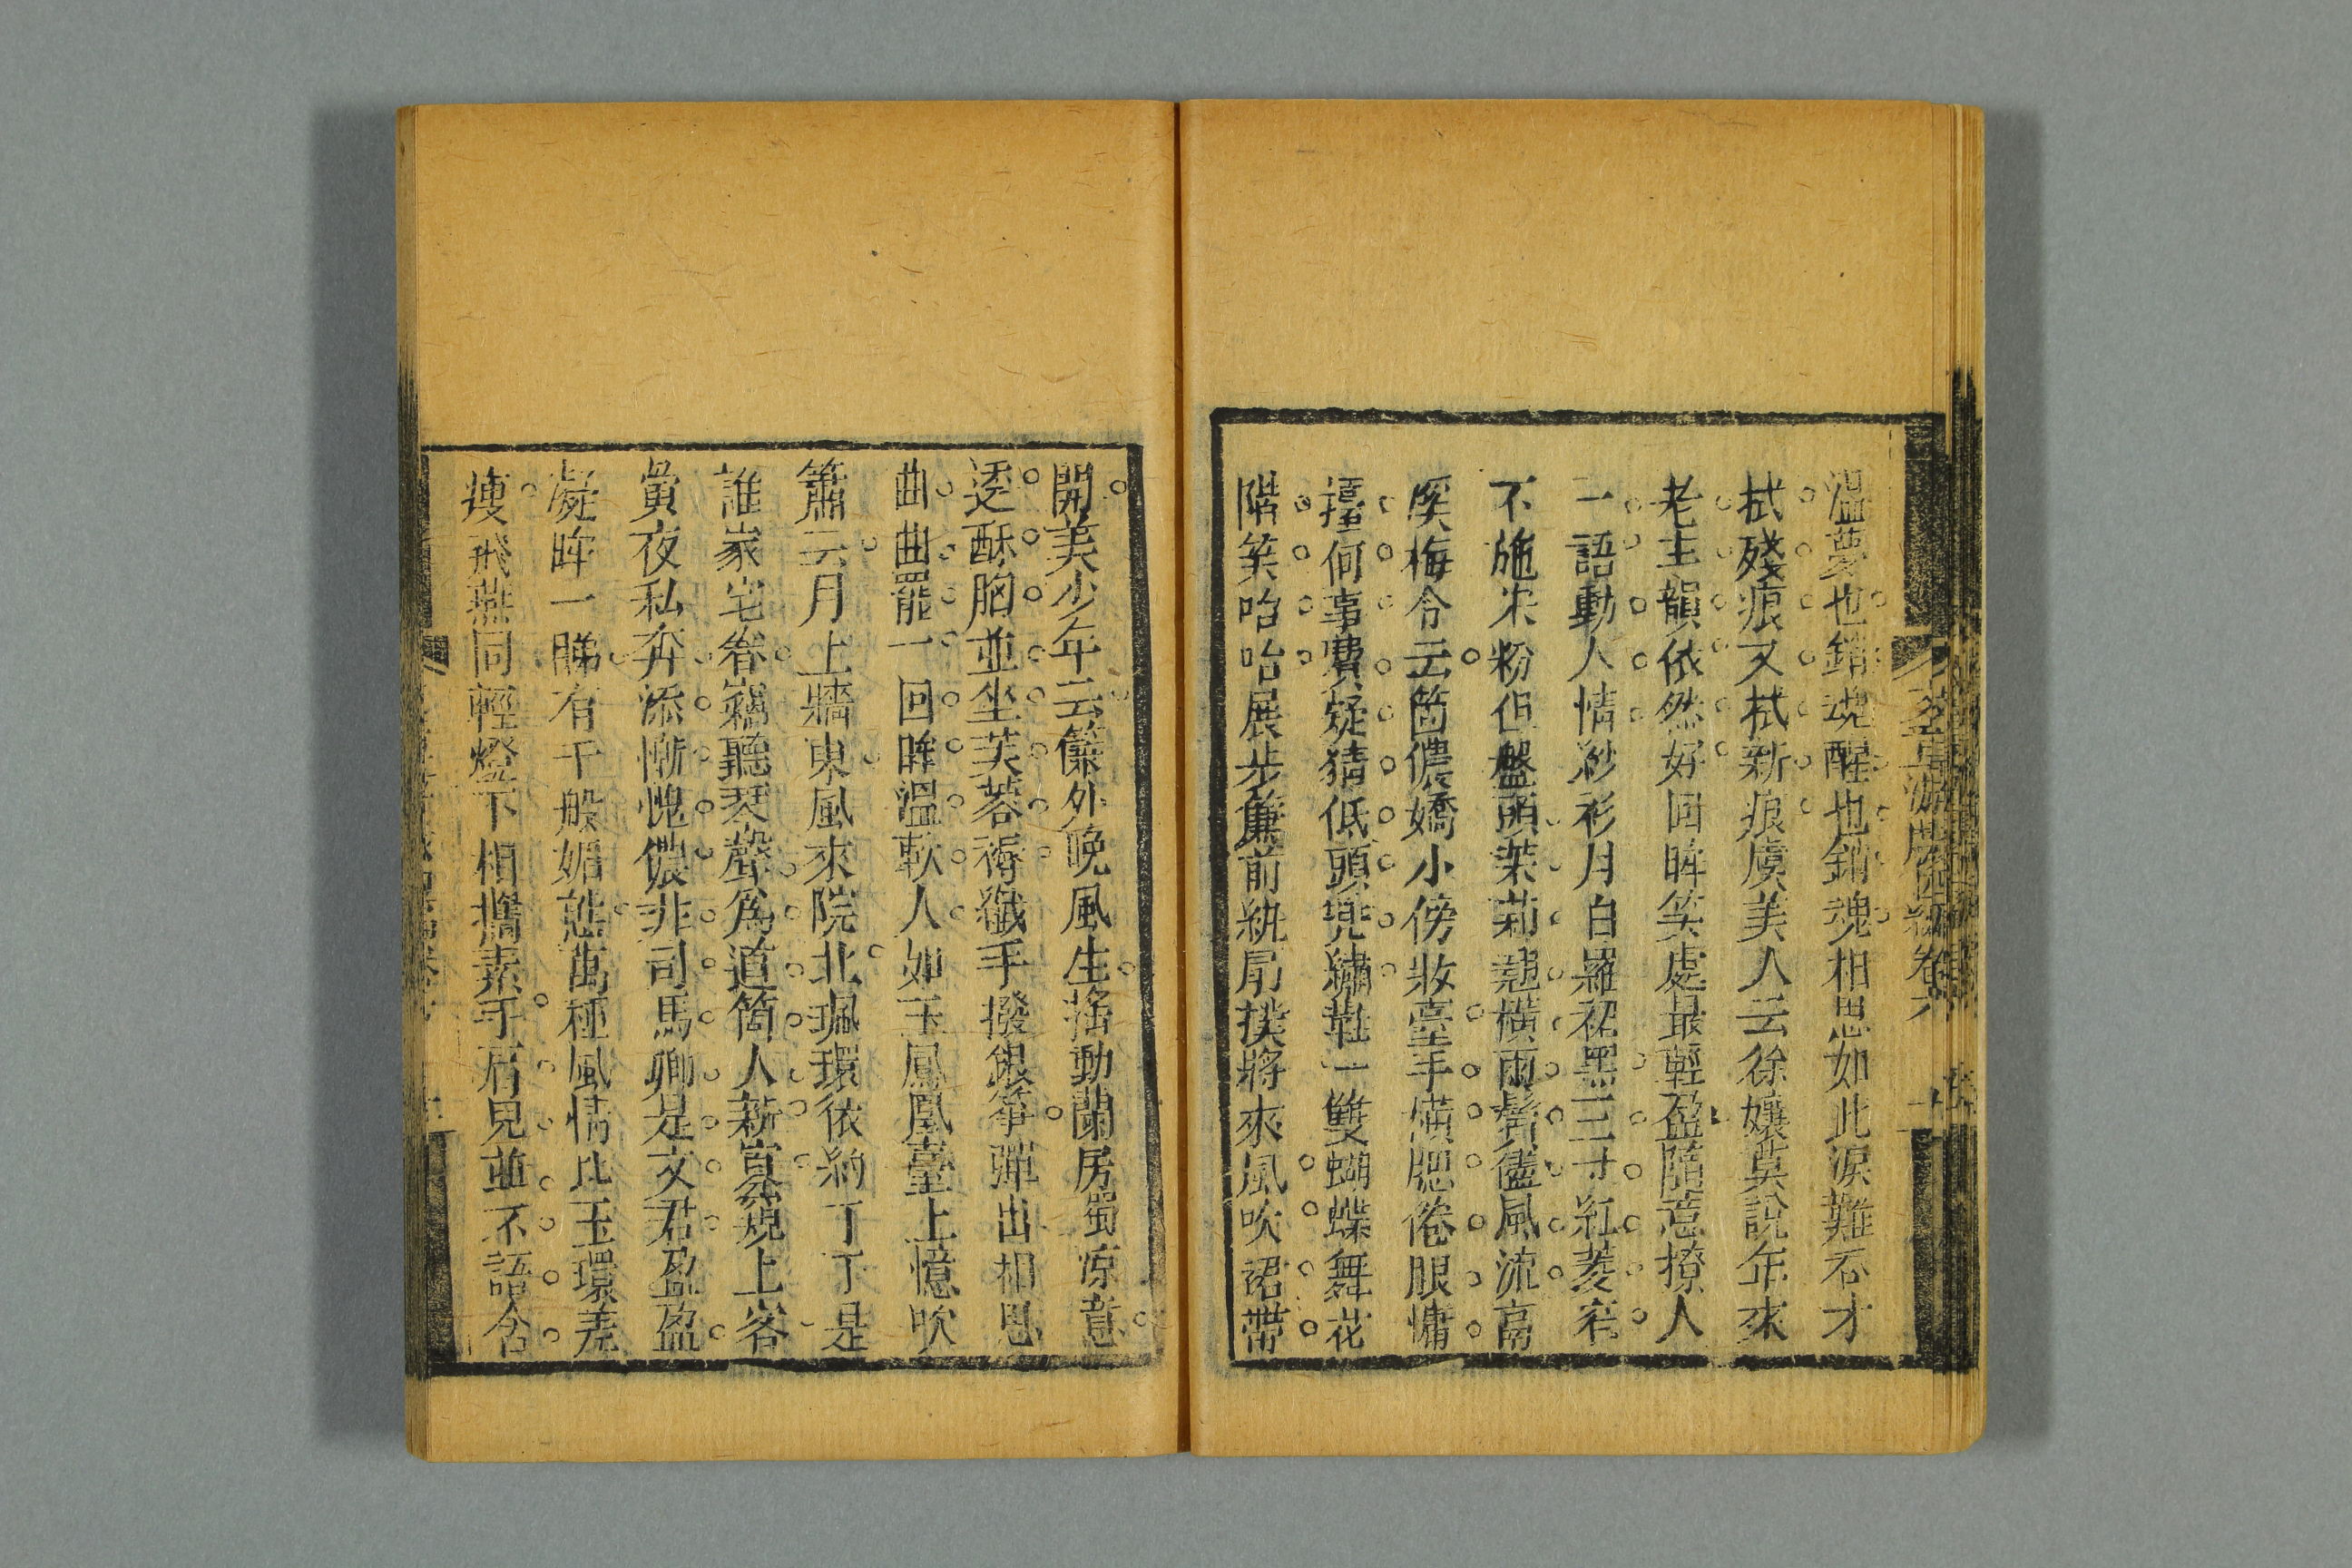 溫夢也銷魂醒也銷魂相思如此淚難不才
拭殘痕又拭新痕虞美人云徐孃莫說年來
老丰韻依然好回眸笑處最輕盈隨意撩人
一語動人情紗衫月白羅裙黑三寸紅菱窄
不施朱粉但盤頭茉莉翹橫兩鬢儘風流高
溪梅令云箇儂嬌小傍妝臺手慵腮倦眼慵
擡何事費疑猜低頭兜繡鞋一雙蝴蝶舞花
階笑哈哈展步簾前紈扇撲將來風吹裙帶
開美少年云簾外晚風生搖動蘭房蜀涼意
透酥胸並坐芙蓉褥纖手撥銀箏彈出相思
曲曲曲罷一回眸溫軟人如玉鳳凰臺上憶吹
簫云月上牆東風來院北珮環依約丁丁是
誰家宅眷竊聽琴聲爲道箇人新寡窺上客
夤夜私奔添慚愧儂非司馬卿是文君盈盈
凝眸一睇有千般媚態萬種風情比玉環差
瘦飛燕同輕燈下相攜素手屑見並不語含